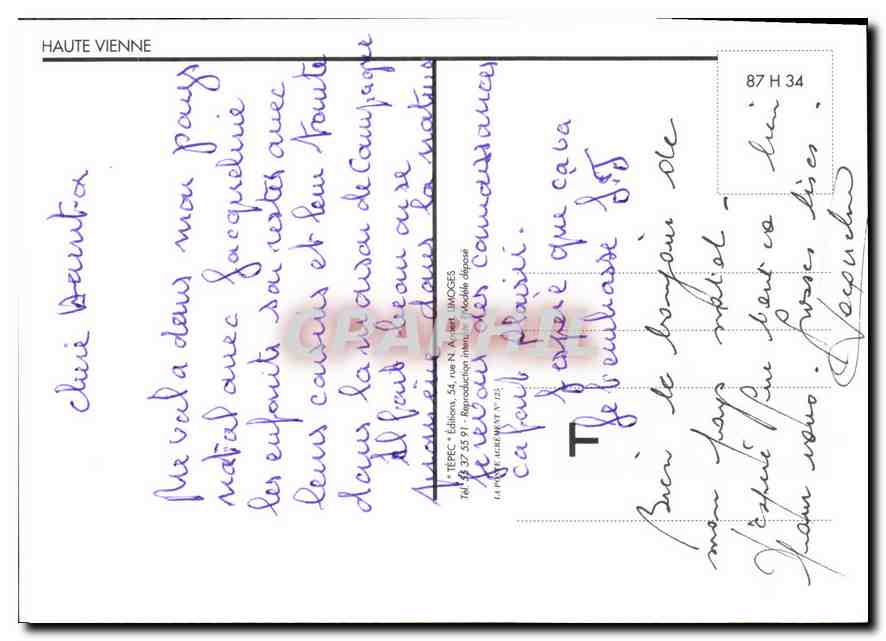 HAUTE VIENNE
87 H 34
chère
Me val a dans mon pays
natal avec Jacqueline
les enfants son restés avec
leurs cousins et leur tante
dans la maison de Campagne
il fait beau on se
promène dans la nature
je revois des connaissances
ça fait plaisir.
J'espère que çava
je t'embrasse
* TÉPEC * Éditions, 54, rue N. Appert LIMOGES
Tél. 55 37 55 91 - Reproduction interdite / Modèle déposé
LA POSTE AGRÉMENT N° 125
T
Bien le bonjour de
mon pays natal -
J'espère que tout va bien
pour vous. Grosses bises.
Jacqueline
CPAPHIL